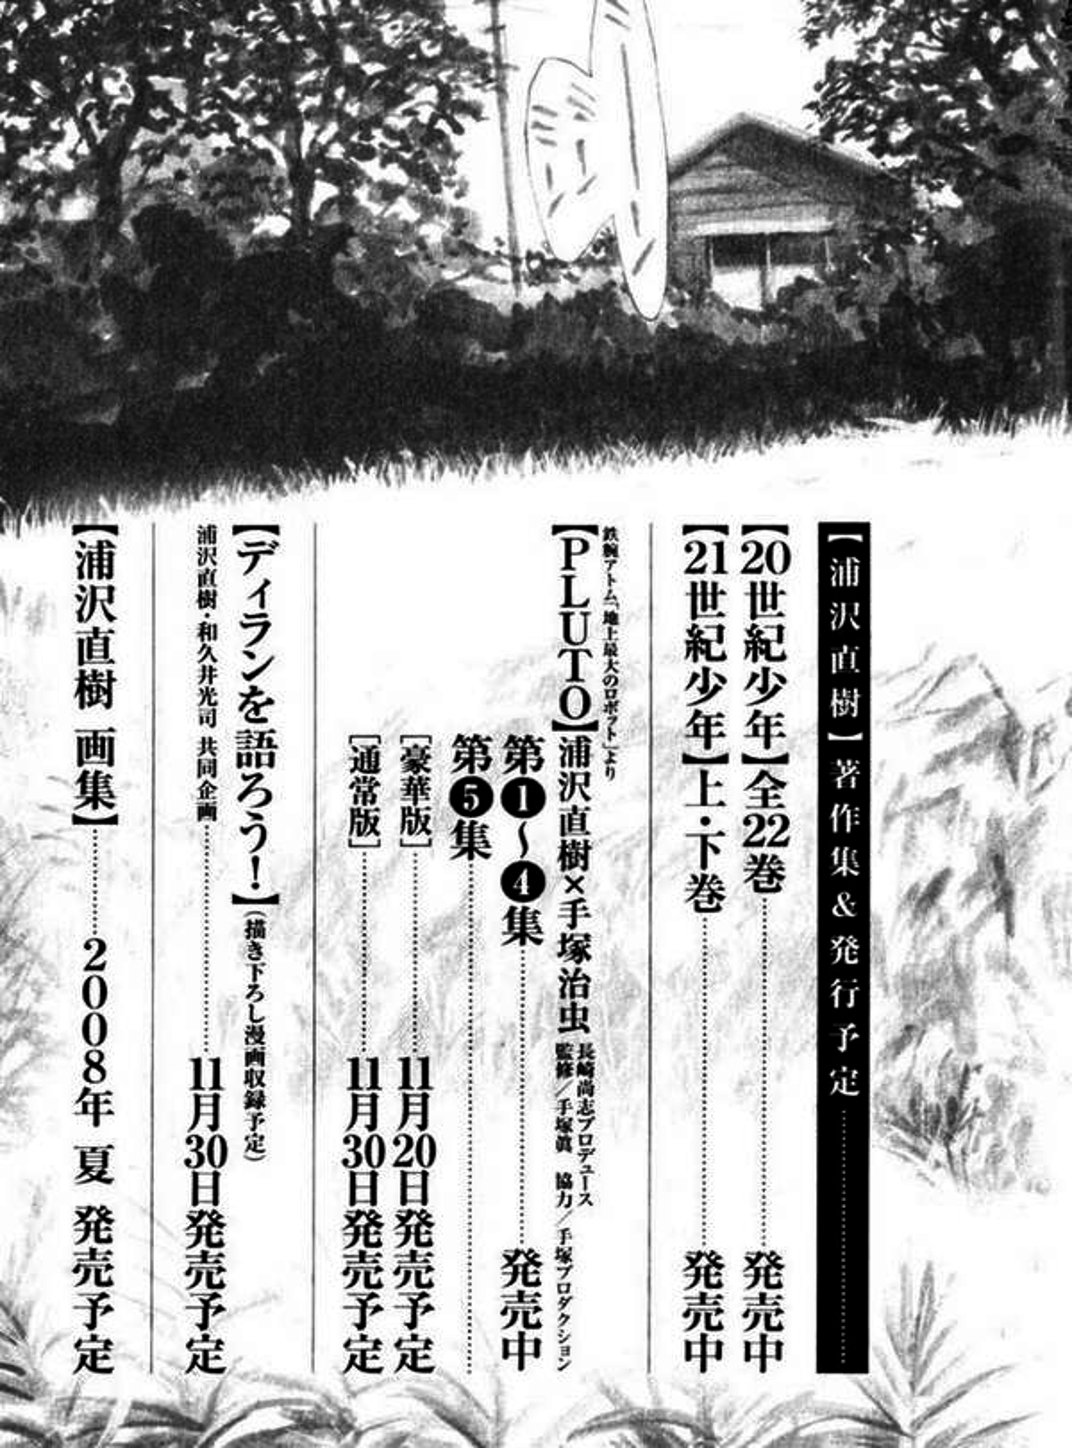 【浦沢直樹】著作集&発行予定
【20世紀少年】全22巻 発売中
【21世紀少年】上・下巻 発売中
鉄腕アトム「地上最大のロボット」より
【PLUTO】浦沢直樹×手塚治虫
長崎尚志プロデュース
監修/手塚眞 協力/手塚プロダクション
第1〜4集 発売中
第5集
[豪華版] 11月20日発売予定
[通常版] 11月30日発売予定
【ディランを語ろう!】(描き下ろし漫画収録予定)
浦沢直樹・和久井光司 共同企画 11月30日発売予定
【浦沢直樹 画集】 2008年 夏 発売予定